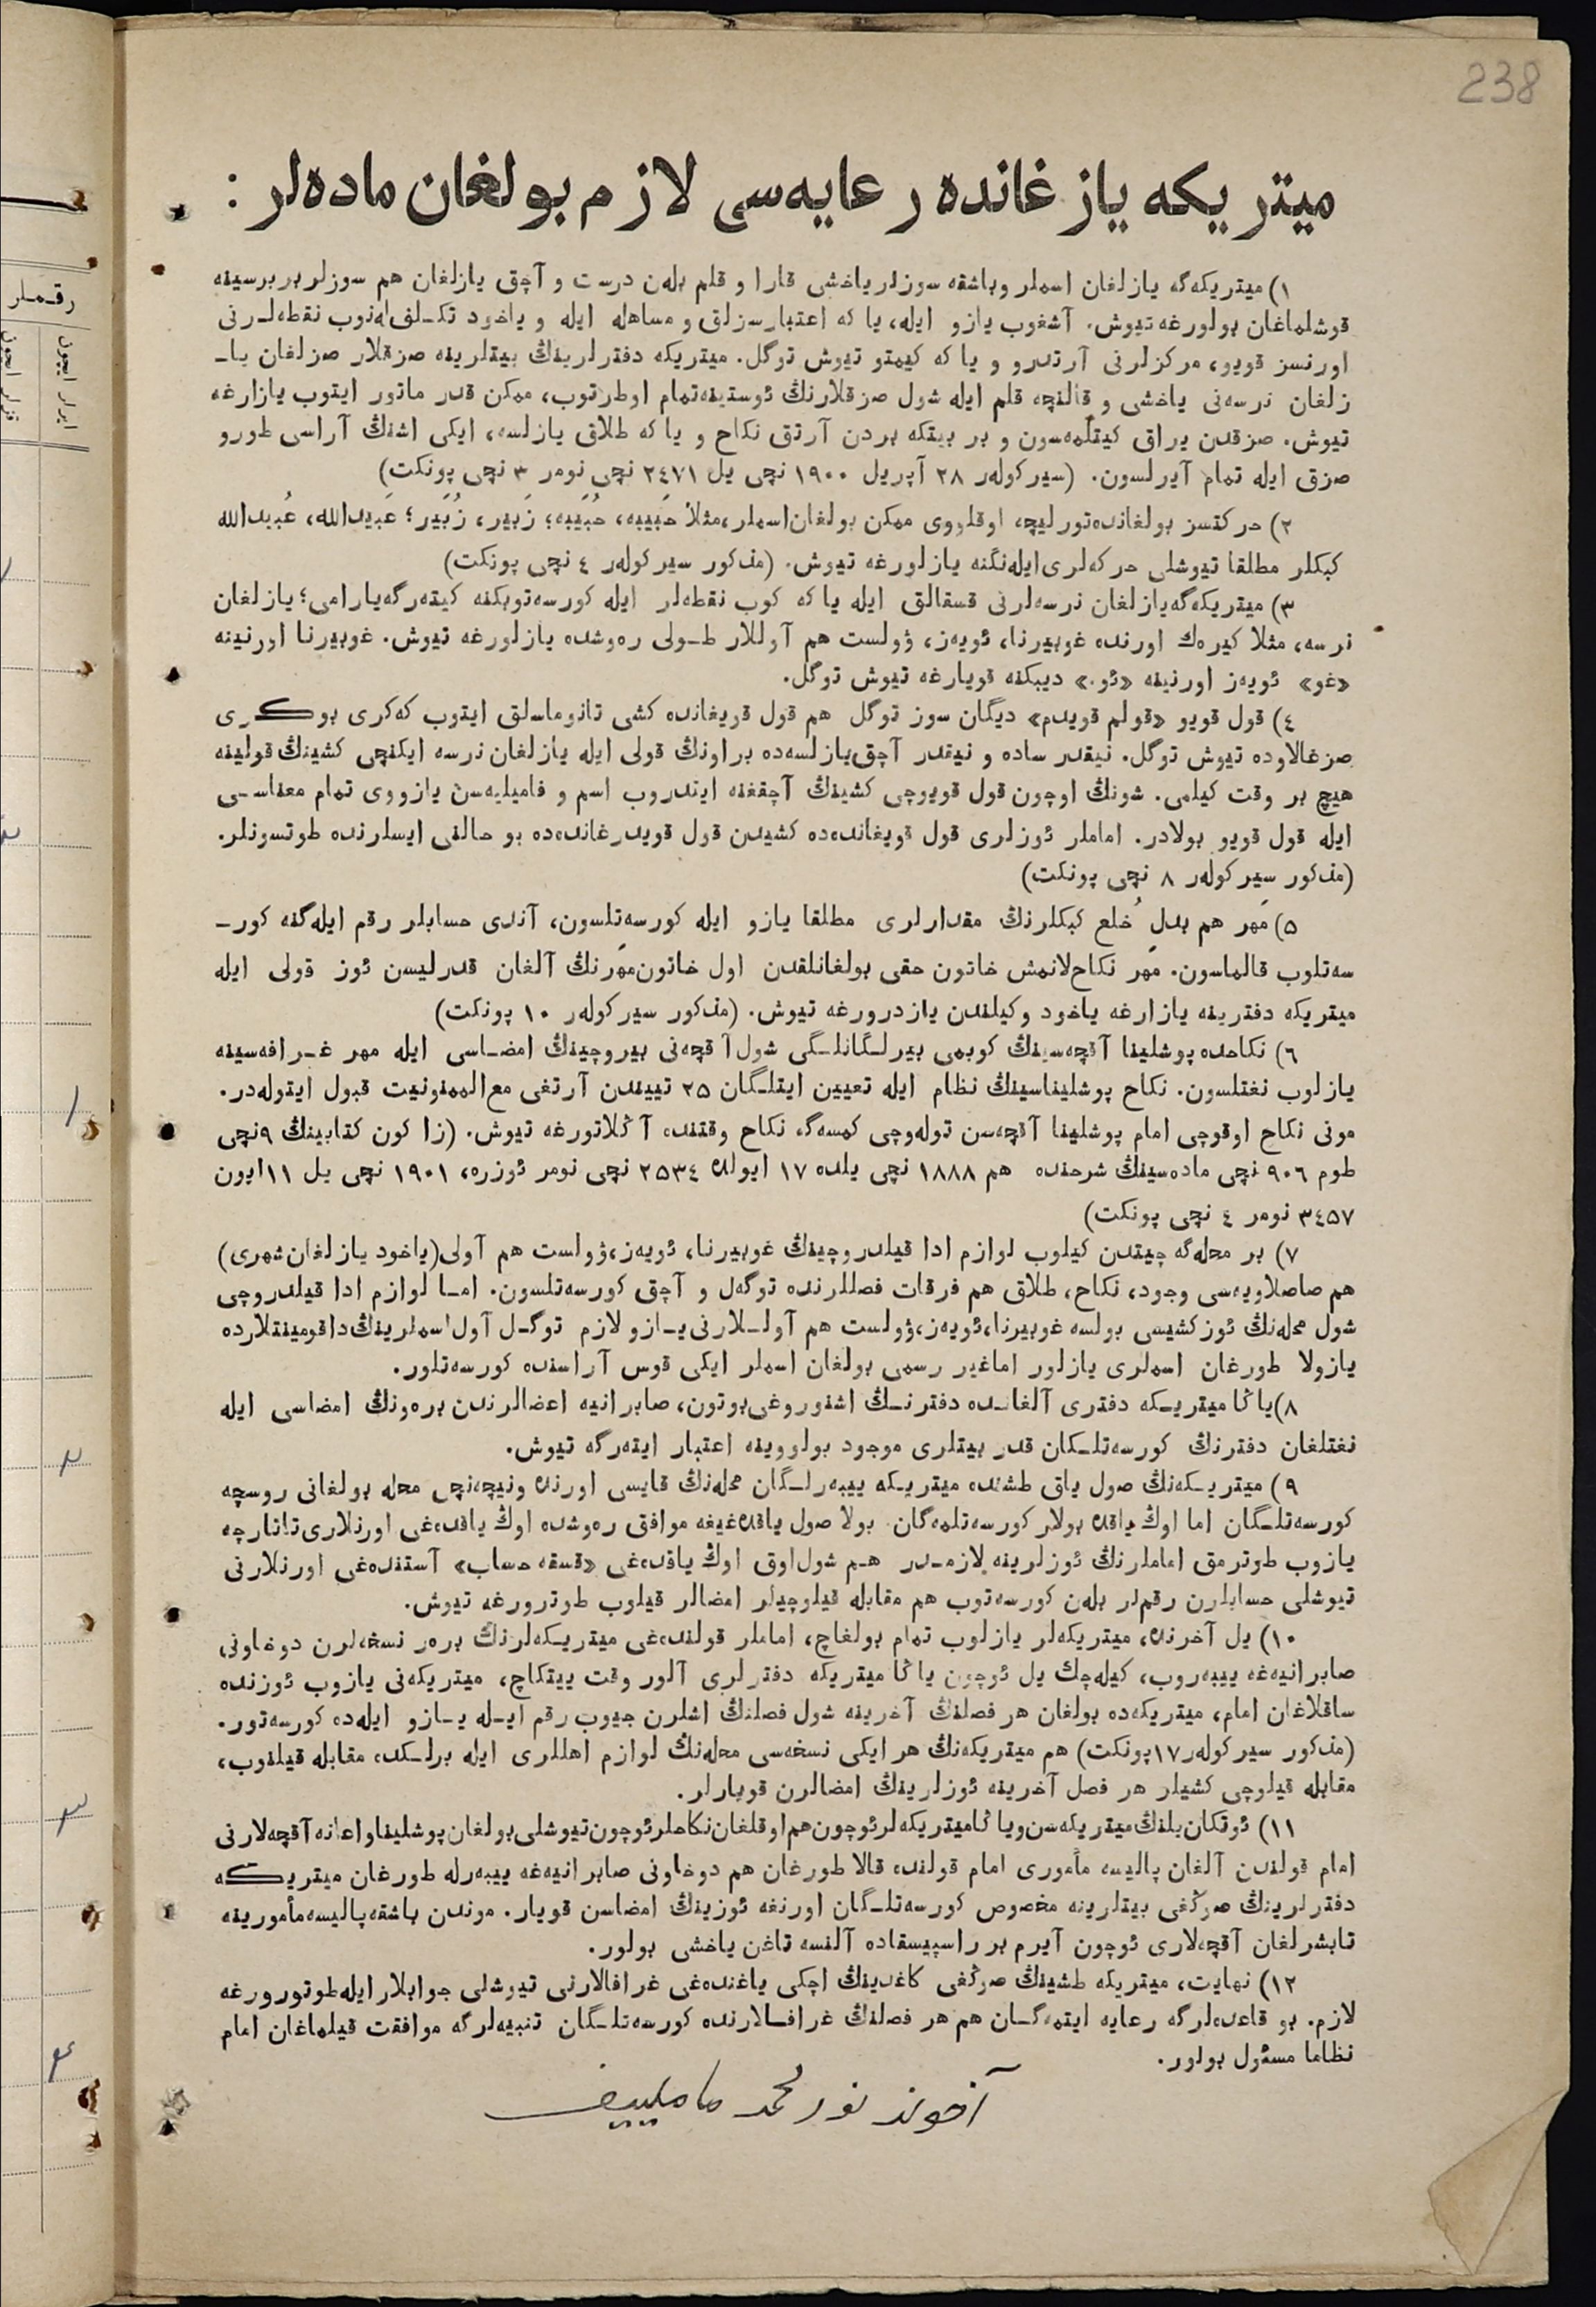 238
میتریکه یازغانده رعایه‌سی لازم بولغان ماده‌لر :
۱) میتریکه‌گه یازلغان اسملر وباشقه سوزلر یاخشی قارا و قلم بله‌ن درست و آچق یازلغان هم سوزلر بربرسینه
قوشلماغان بولورغه تیوش. آشغوب یازو ایله، یا که اعتبارسزلق و مساهله ایله و یاخود تکلف‌له‌نوب نقطه‌لرنی
اورنسز قویو، مرکزلرنی آرتدرو و یا که کیمتو تیوش توگل. میتریکه دفترلرینڭ بیتلرینه صزقلار صزلغان یا-
زلغان نرسه‌نی یاخشی و قالنچه قلم ایله شول صزقلارنڭ ئوستینه‌تمام اوطرتوب، ممکن قدر ماتور ایتوب یازارغه
تیوش. صزقدن یراق کیتلمه‌سون و بر بیتکه بردن آرتق نکاح و یا که طلاق یازلسه، ایکی اشنڭ آراسی طورو
صزق ایله تمام آیرلسون. (سیرکوله‌ر ۲۸ آپریل ۱۹۰۰ نچی یل ۲٤۷۱ نچی نومر ۳ نچی پونکت)
۲) حرکتسز بولغانده‌تورلیچه اوقلووی ممکن بولغان‌اسملر،مثلا حَبیبه، حُبَیبه؛ زَبیر، زُبَیر؛ عَبیدالله، عُبیدالله
کبکلر مطلقا تیوشلی حرکه‌لری‌ایله‌نگنه یازلورغه تیوش. (مذکور سیرکوله‌ر ٤ نچی پونکت)
۳) میتریکه‌گه‌یازلغان نرسه‌لرنی قسقالق ایله یا که کوب نقطه‌لر ایله کورسه‌توبکنه کیته‌رگه‌یارامی؛ یازلغان
نرسه، مثلا کیره‌ك اورنده غوبیرنا، ئویه‌ز، ۋولست هم آوللار طولی ره‌وشده یازلورغه تیوش. غوبیرنا اورنینه
«غو» ئویه‌ز اورنینه «ئو.» دیبکنه قویارغه تیوش توگل.
٤) قول قویو «قولم قویدم» دیگان سوز توگل هم قول قویغانده کشی تانوماسلق ایتوب که‌کری بوکری
صزغالاوده تیوش توگل. نیقدر ساده و نیقدر آچق‌یازلسه‌ده براونڭ قولی ایله یازلغان نرسه ایکنچی کشینڭ قولینه
هیچ بر وقت کیلمی. شونڭ اوچون قول قویوچی کشینڭ آچقغنه ایندروب اسم و فامیلیه‌سن یازووی تمام معناسی
ایله قول قویو بولادر. اماملر ئوزلری قول قویغانده‌ده کشیدن قول قویدرغانده‌ده بو حالنی ایسلرنده طوتسونلر.
(مذکور سیرکوله‌ر ۸ نچی پونکت)
۵) مَهر هم بدلِ خُلع کبکلرنڭ مقدارلری مطلقا یازو ایله کورسه‌تلسون، آندی حسابلر رقم ایله‌گنه کور-
سه‌تلوب قالماسون. مَهر نکاح‌لانمش خاتون حقی بولغانلقدن اول خاتون‌مَهرنڭ آلغان قدرلیسن ئوز قولی ایله
میتریکه دفترینه یازارغه یاخود وکیلندن یازدرورغه تیوش. (مذکور سیرکوله‌ر ۱۰ پونکت)
٦) نکاحده پوشلینا آقچه‌سینڭ کوبمی بیرلگانلگی شول آقچه‌نی بیروچینڭ امضاسی ایله مهر غرافه‌سینه
یازلوب نغتلسون. نکاح پوشلیناسینڭ نظام ایله تعیین ایتلگان ۲۵ تییندن آرتغی مع‌الممنونیت قبول ایتوله‌در.
مونی نکاح اوقوچی امام پوشلینا آقچه‌سن توله‌وچی کمسه‌گه نکاح وقتنده آڭلاتورغه تیوش. (زاکون کتابینڭ ۹نچی
طوم ۹۰٦ نچی ماده‌سینڭ شرحنده هم ۱۸۸۸ نچی یلده ۱۷ ایولده ۲۵۳٤ نچی نومر ئوزره، ۱۹۰۱ نچی یل ۱۱ایون
۳٤۵۷ نومر ٤ نچی پونکت)
۷) بر محله‌گه چیتدن کیلوب لوازم ادا قیلدروچینڭ غوبیرنا، ئویه‌ز،ۋولست هم آولی(یاخود یازلغان‌شهری)
هم صاصلاویه‌سی وجود، نکاح، طلاق هم فرقات فصللرنده توگه‌ل و آچق کورسه‌تلسون. اما لوازم ادا قیلدروچی
شول محله‌نڭ ئوزکشیسی بولسه غوبیرنا،ئویه‌ز،ۋولست هم آوللارنی‌یازو لازم توگل آول‌اسملرینڭ‌داقومینتلارده
یازولا طورغان اسملری یازلور اماغیر رسمی بولغان اسملر ایکی قوس آراسنده کورسه‌تلور.
۸)یاڭا میتریکه دفتری آلغانده دفترنڭ اشنوروغی‌بوتون، صابرانیه اعضالرندن بره‌ونڭ امضاسی ایله
نغتلغان دفترنڭ کورسه‌تلکان قدر بیتلری موجود بولووینه اعتبار ایته‌رگه تیوش.
۹) میتریکه‌نڭ صول یاق طشنده میتریکه ییبه‌رلگان محله‌نڭ قایسی اورنده ونیچه‌نچی محله بولغانی روسچه
کورسه‌تلگان اما اوڭ یاقده بولار کورسه‌تلمه‌گان. بولا صول یاقده‌غیغه موافق ره‌وشده اوڭ یاقده‌غی اورنلاری‌تاتارچه
یازوب طوترمق اماملرنڭ ئوزلرینه لازمدر هم شول‌اوق اوڭ یاقده‌غی «قسقه حساب» آستنده‌غی اورنلارنی
تیوشلی حسابلرن رقم‌لر بله‌ن کورسه‌توب هم مقابله قیلوچیلر امضالر قیلوب طوترورغه تیوش.
۱۰) یل آخرنده، میتریکه‌لر یازلوب تمام بولغاچ، اماملر قولنده‌غی میتریکه‌لرنڭ بره‌ر نسخه‌لرن دوخاونی
صابرانیه‌غه ییبه‌روب، کیله‌چك یل ئوچون یاڭا میتریکه دفترلری آلور وقت ییتکاچ، میتریکه‌نی یازوب ئوزنده
ساقلاغان امام، میتریکه‌ده بولغان هر فصلنڭ آخرینه شول فصلنڭ اشلرن جیوب رقم ایله یازو ایله‌ده کورسه‌تور.
(مذکور سیرکوله‌ر ۱۷پونکت) هم میتریکه‌نڭ هر ایکی نسخه‌سی محله‌نڭ لوازم اهللری ایله برلکده مقابله قیلنوب،
مقابله قیلوچی کشیلر هر فصل آخرینه ئوزلرینڭ امضالرن قویارلر.
۱۱) ئوتکان‌یلنڭ‌میتریکه‌سن‌ویاڭامیتریکه‌لرئوچون‌هم‌اوقلغان‌نکاحلرئوچون‌تیوشلی‌بولغان‌پوشلیناواعانه‌آقچه‌لارنی
امام قولندن آلغان پالیسه مأموری امام قولنده قالا طورغان هم دوخاونی صابرانیه‌غه ییبه‌رله طورغان میتریکه
دفترلرینڭ صوڭغی بیتلرینه مخصوص کورسه‌تلگان اورنغه ئوزینڭ امضاسن قویار. موندن باشقه‌پالیسه‌مأمورینه
تابشرلغان آقچه‌لاری ئوچون آیرم بر راسپیسقاده آلنسه تاغن یاخشی بولور.
۱۲) نهایت، میتریکه طشینڭ صوڭغی کاغدینڭ اچکی یاغنده‌غی غرافالارنی تیوشلی جوابلار ایله‌طوتورورغه
لازم. بو قاعده‌لرگه رعایه ایتمه‌گان هم هر فصلنڭ غرافالارنده کورسه‌تلگان تنبیه‌لرگه موافقت قیلماغان امام
نظاما مسئول بولور.
آخوند نورمحمد ماملییف
رقملر